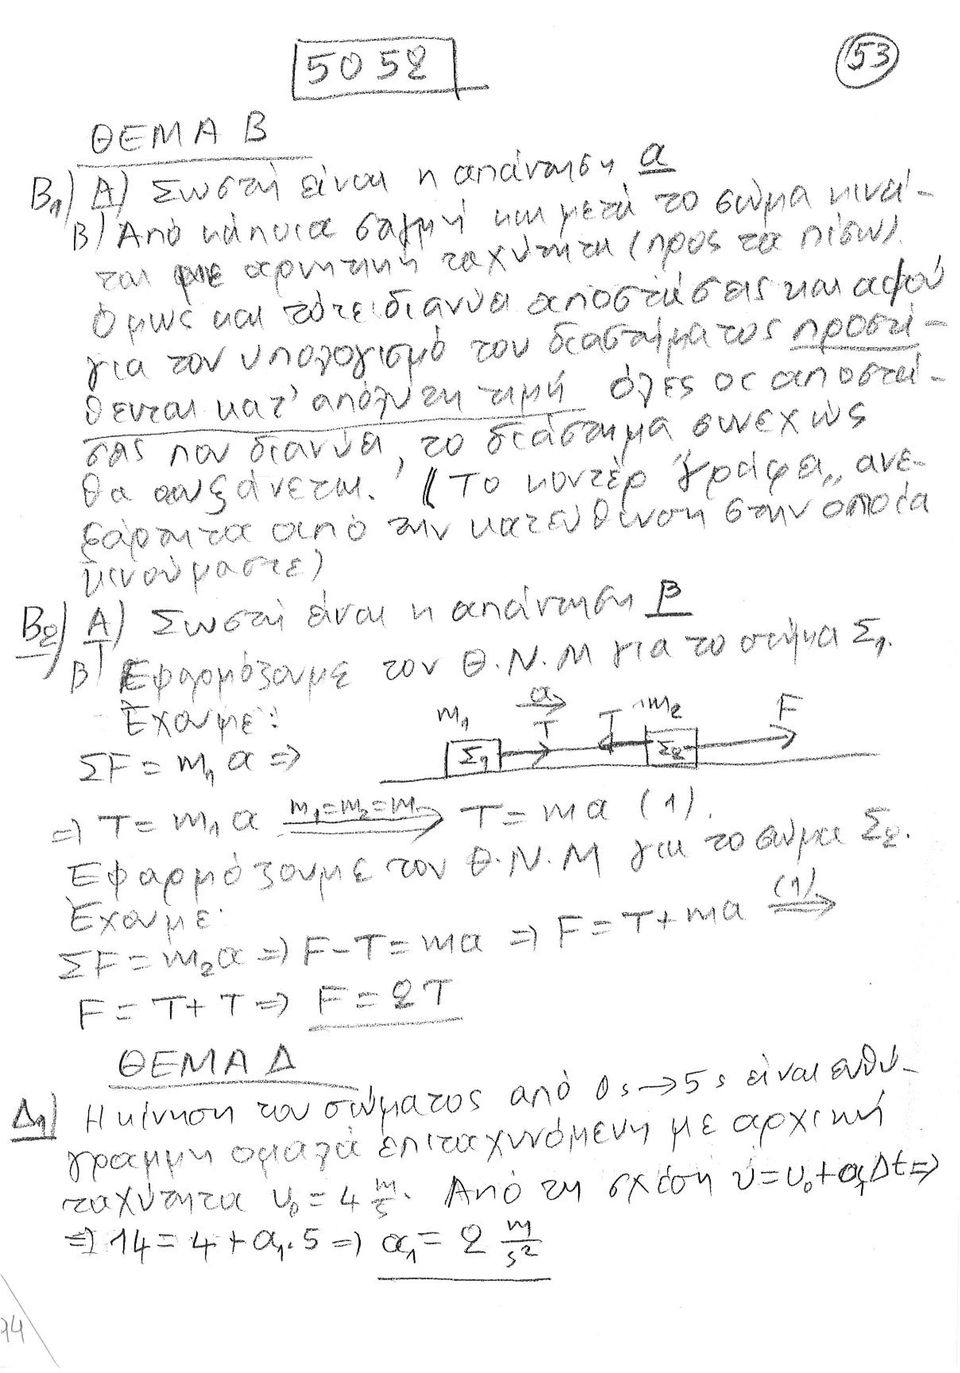 5052
53
ΘΕΜΑ Β
Β₁) Α) Σωστή είναι η απάντηση α
Β) Από κάποια στιγμή και μετά το σώμα κινεί-
ται με αρνητική ταχύτητα (προς τα πίσω).
Όμως και τότε διανύει αποστάσεις και αφού
για τον υπολογισμό του διαστήματος προστί-
θενται κατ' απόλυτη τιμή όλες οι αποστά-
σεις που διανύει, το διάστημα συνεχώς
θα αυξάνεται. (Το κοντέρ "γράφει,, ανε-
ξάρτητα από την κατεύθυνση στην οποία
κινούμαστε)
Β₂) Α) Σωστή είναι η απάντηση β
Β) Εφαρμόζουμε τον Θ.Ν.Μ για το σώμα Σ₁.
Έχουμε:
m₁ α T T m₂ F
Σ₁ Σ₂
ΣF = m₁ α ⇒
⇒ T = m₁ α m₁=m₂=m ⇒ T = mα (1).
Εφαρμόζουμε τον Θ.Ν.Μ για το σώμα Σ₂.
Έχουμε:
ΣF = m₂α ⇒ F-T = mα ⇒ F = T+mα (1) ⇒
F = T+T ⇒ F = 2T
ΘΕΜΑ Δ
Δ₁) Η κίνηση του σώματος από 0s → 5s είναι ευθύ-
γραμμη ομαλά επιταχυνόμενη με αρχική
ταχύτητα υ₀ = 4 m/s. Από τη σχέση υ = υ₀ + α₁Δt ⇒
⇒ 14 = 4 + α₁.5 ⇒ α₁ = 2 m/s²